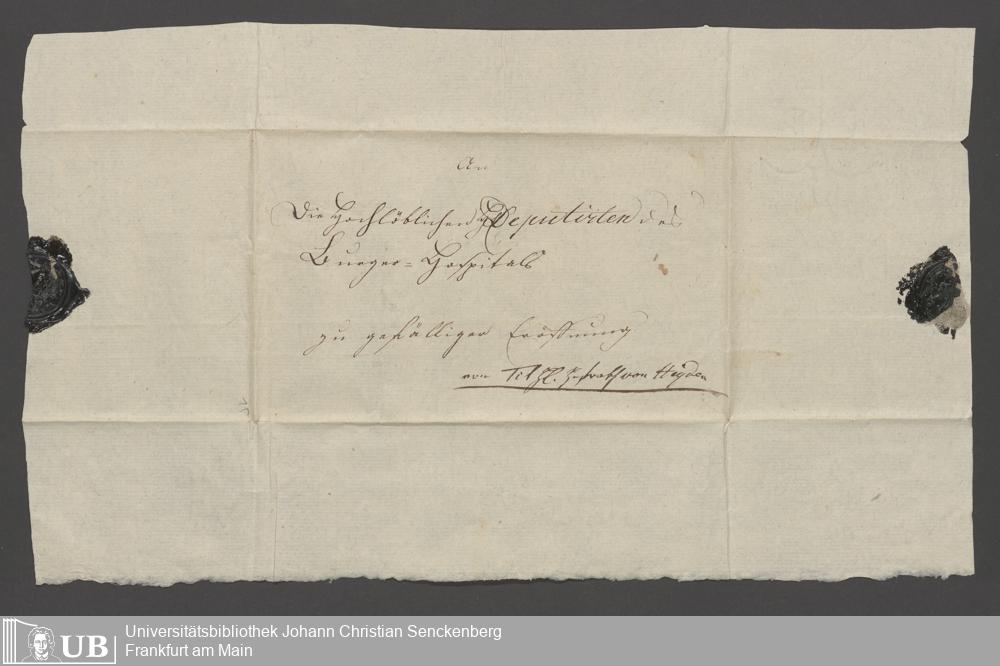 An
Die Hochlöblichen Deputirten des
Burger=Hospitals
zu gefälliger Eröffnung
von Tit Hl. Hofrath von Heyden
UB
Universitätsbibliothek Johann Christian Senckenberg
Frankfurt am Main